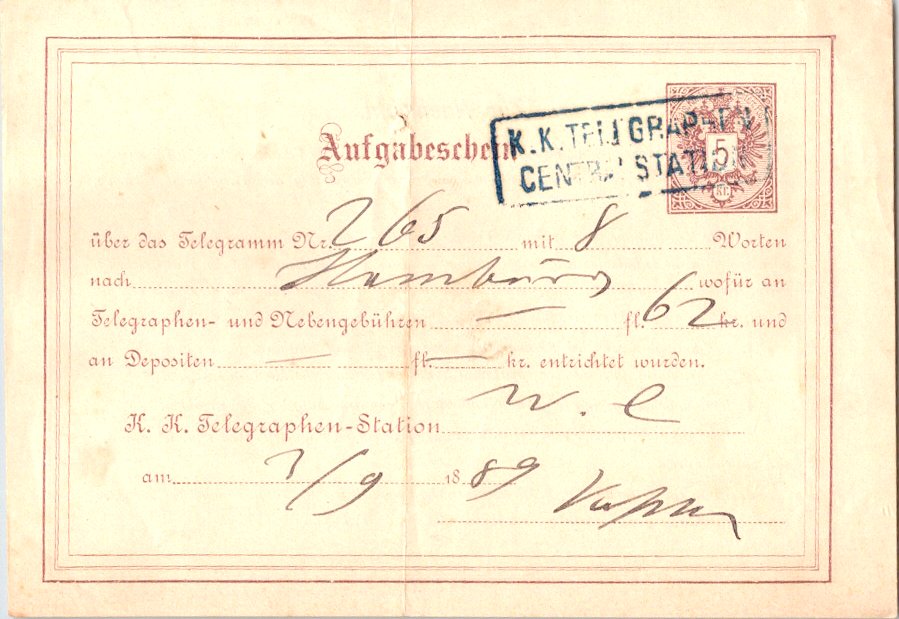 Aufgabeschein
K. K. TELEGRAPHEN
CENTRAL STATION
5
KR.
über das Telegramm Nr. 265 mit 8 Worten
nach Hamburg wofür an
Telegraphen- und Nebengebühren — fl. 62 kr. und
an Depositen — fl. — kr. entrichtet wurden.
K. K. Telegraphen-Station W. C
am /9 1889